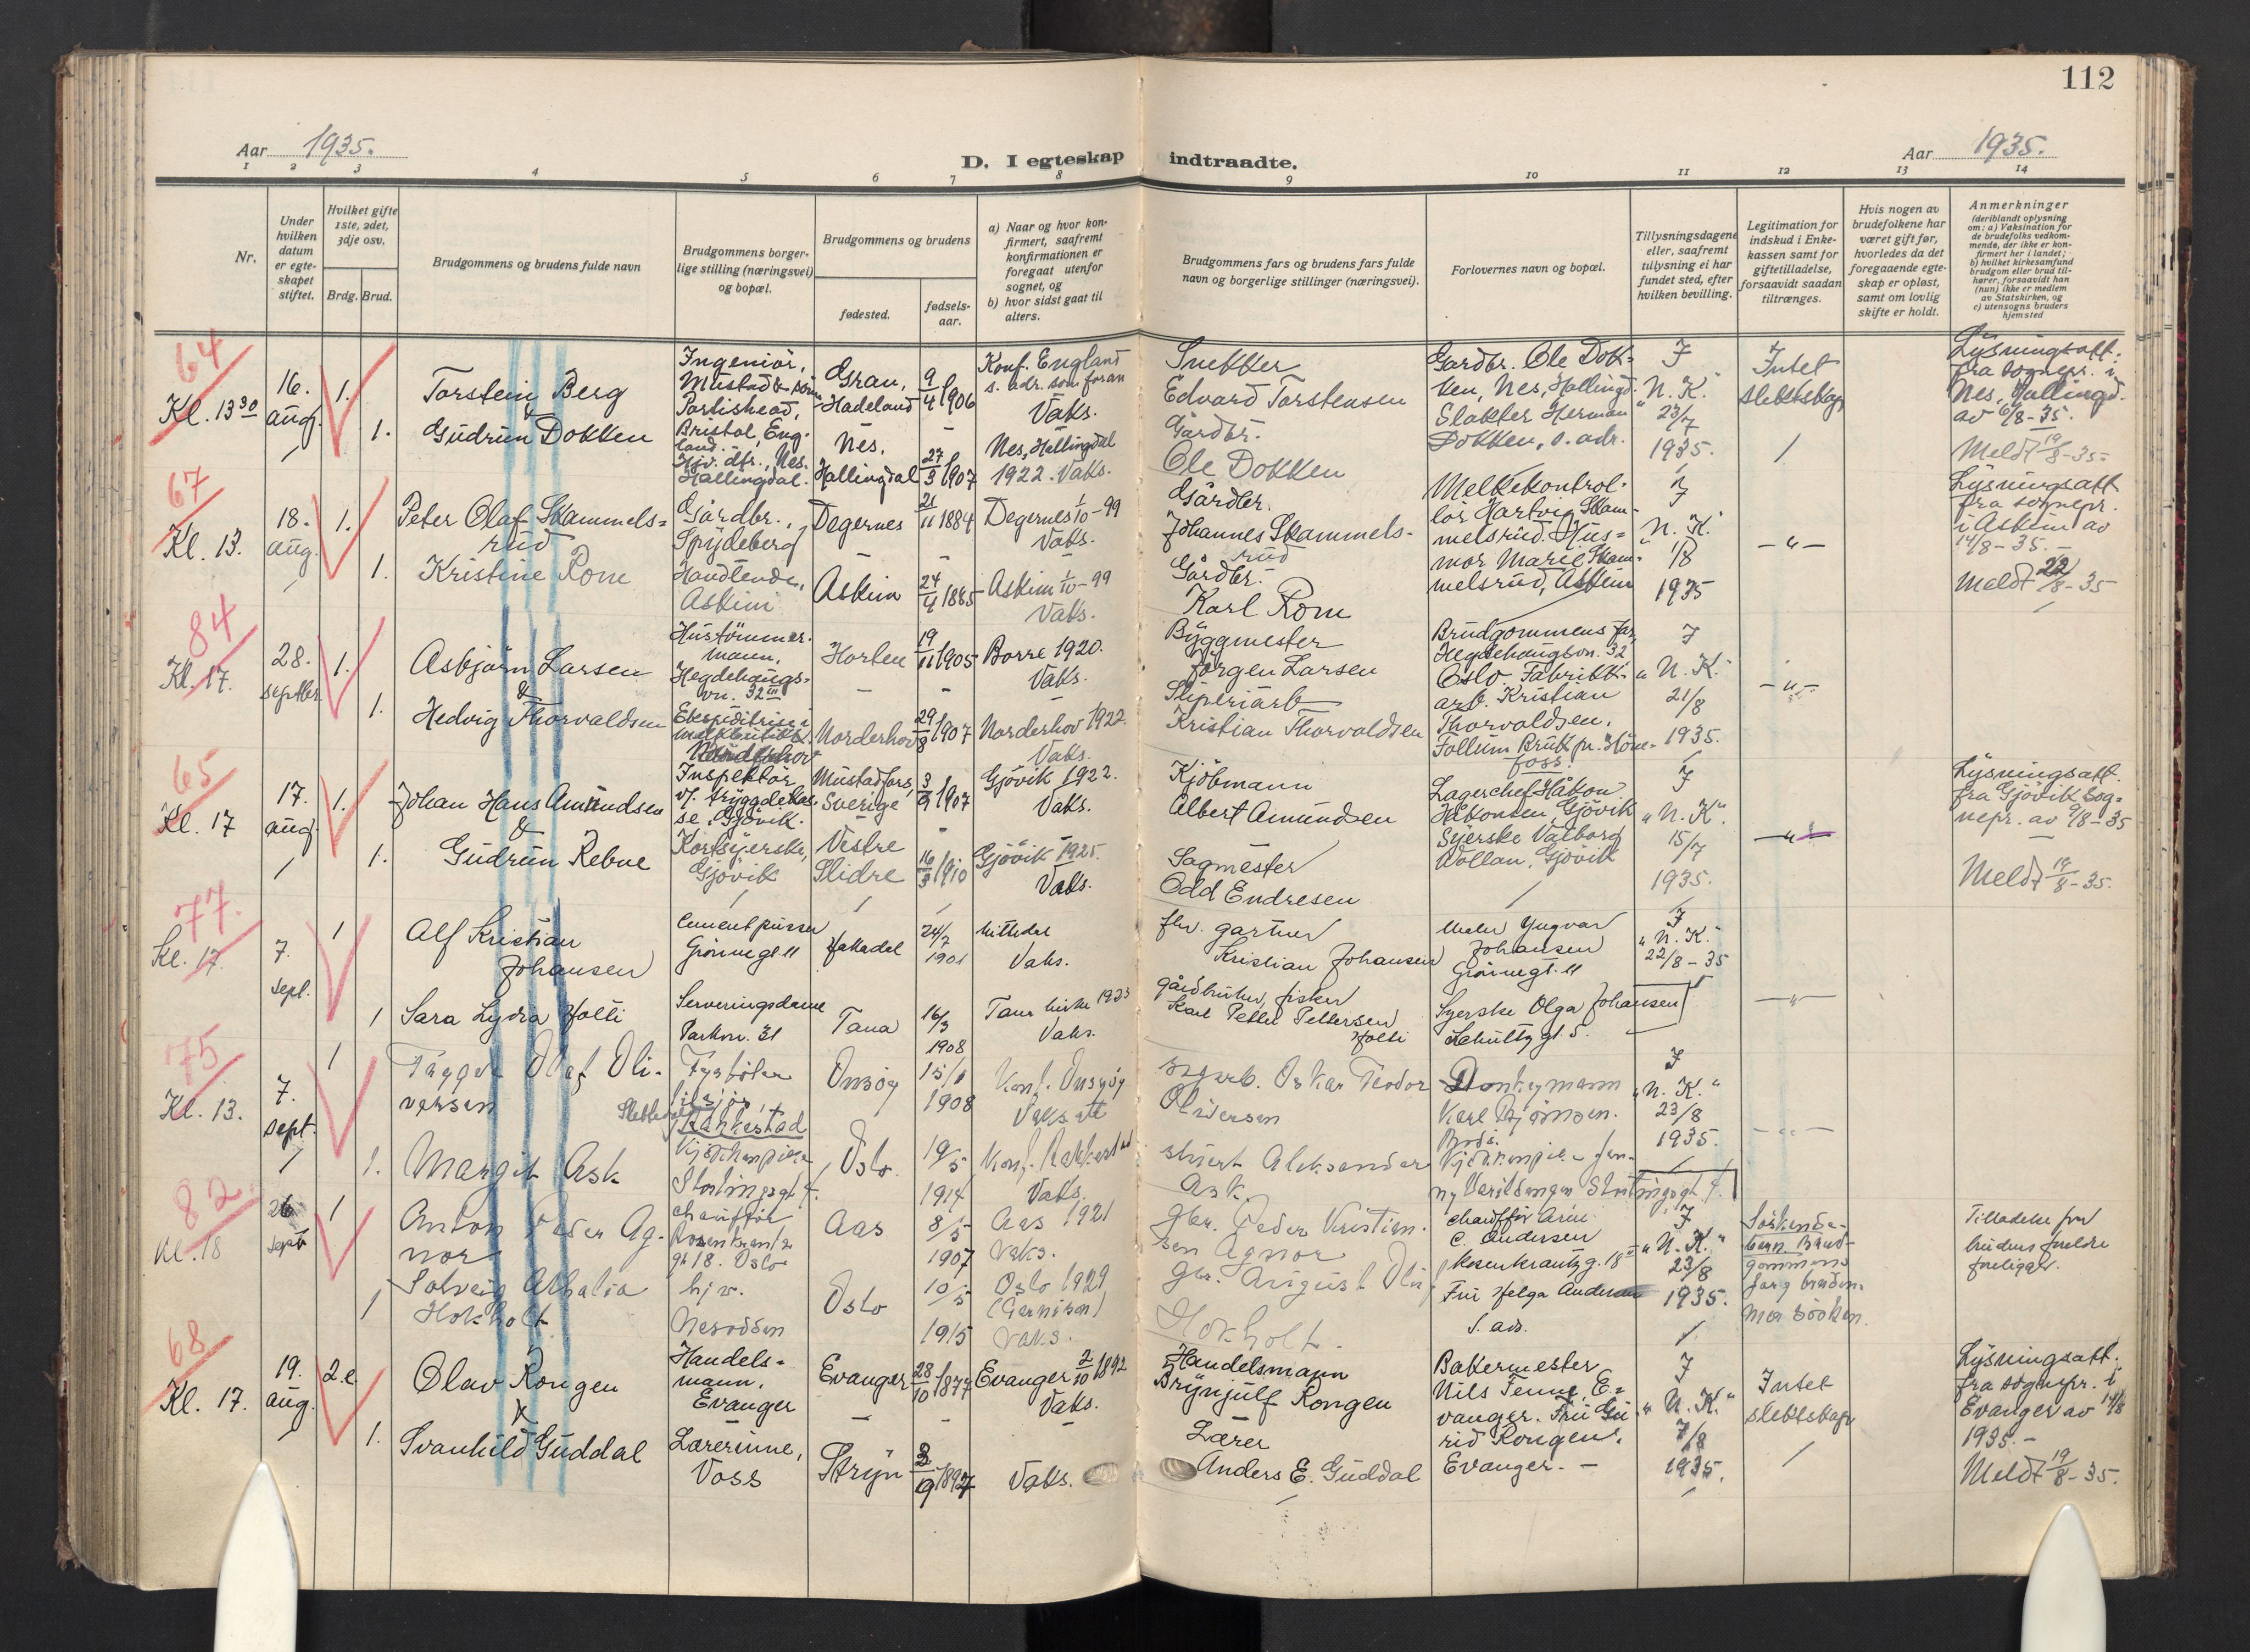 112
Aar 1935.
D. I egteskap indtraadte.
Aar 1935.
1 2 3 4 5 6 7 8 9 10 11 12 13 14
Nr.
Under hvilken datum er egteskapet stiftet.
Hvilket gifte 1ste, 2det, 3dje osv.
Brdg. Brud.
Brudgommens og brudens fulde navn
Brudgommens borgerlige stilling (næringsvei) og bopæl.
Brudgommens og brudens
fødested.
fødselsaar.
a) Naar og hvor konfirmert, saafremt konfirmationen er foregaat utenfor sognet, og
b) hvor sidst gaat til alters.
Brudgommens fars og brudens fars fulde navn og borgerlige stillinger (næringsvei).
Forlovernes navn og bopæl.
Tillysningsdagene eller, saafremt tillysning ei har fundet sted, efter hvilken bevilling.
Legitimation for indskud i Enkekassen samt for giftetilladelse, forsaavidt saadan tiltrænges.
Hvis nogen av brudefolkene har været gift før, hvorledes da det foregaaende egteskap er opløst, samt om lovlig skifte er holdt.
Anmerkninger
(deriblandt oplysning om: a) Vaksination for de brudefolks vedkommende, der ikke er konfirmert her i landet; b) hvilket kirkesamfund brudgom eller brud tilhører, forsaavidt han (hun) ikke er medlem av Statskirken, og c) utensogns bruders hjemsted
64
Kl. 13 30
16. aug.
1.
Torstein Berg
&
1.
Gudrun Dokken
Ingeniör, Mustad & sön Portishead, Bristol, England.
Hjv. dtr., Nes. Hallingdal.
Gran, Hadeland
9/4 1906
Konf. England s. adr. som foran
Vaks.
Nes, Hallingdal
27/3 1907
Nes, Hallingdal 1922. Vaks.
Snekker
Edvard Torstensen
Gårdbr.
Ole Dokken
Gardbr. Ole Dokken, Nes, Hallingd.
Slakter Herman Dokken, s. adr.
I "N. K." 23/7 1935.
Intet slektskap
Lysningsatt. fra sognepr. i Nes, Hallingd. av 6/8-35.
Meldt 19/8-35
67
Kl. 13.
18. aug.
1.
Peter Olaf Skammelsrud
1.
Kristine Rom
Gårdbr., Spydeberg
Handlende, Askim
Degernes
21/11 1884
Degernes 1/10-99
Vaks.
Askim
24/4 1885
Askim 1/10-99
Vaks.
Gårdbr.
Johannes Skammelsrud
Gårdbr.
Karl Rom
Melkekontrollör Hartvig Skammelsrud. Husmor Marie Skammelsrud, Askim
I "N. K." 1/8 1935
-"-
Lysningsatt. fra sognepr. i Askim av 14/8-35.-
Meldt 22/8-35
84
Kl. 17.
28. septbr.
1.
Asbjörn Larsen
&
1.
Hedvig Thorvaldsen
Hustömmermann, Hegdehaugsvn. 32 III
Ekspeditrise i melkbutikk
Horten
19/11 1905
Borre 1920.
Vaks.
Norderhov
29/8 1907
Norderhov 1922.
Vaks.
Byggmester
Jörgen Larsen
Sliperiarb
Kristian Thorvaldsen
Brudgommens far, Hegdehaugsvn. 32 Oslo. Fabrikkarb. Kristian Thorvaldsen, Follum Bruk pr. Hönefoss.
I "N. K." 21/8 1935.
-"-
65
Kl. 17
17. aug.
1.
Johan Hans Amundsen
&
1.
Gudrun Rebne
Inspektör v/ tryggdekasse, Gjövik.
Gjövik
Mustadfors, Sverige
3/9 1907
Gjövik 1922.
Vaks.
Vestre Slidre
16/3 1910
Gjövik 1925.
Vaks.
Kjöbmann
Albert Amundsen
Sagmester
Odd Endresen
Lagerchef Håkon Håkonsen, Gjövik
Syerske Valborg Wollan, Gjövik
I "N. K." 15/7 1935.
-"-
Lysningsatt. fra Gjövik sognepr. av 9/8-35
Meldt 19/8-35.
77.
Kl. 17.
7. sept.
1
Alf Kristian Johansen
1
Sara Lydia Holti
Cementpusser
Grönnegt 11
Serveringsdame
Parkvn. 31
Hakadal
24/7 1901
Nittedal
Vaks.
Tana
16/3 1908
Tana kirke 1923
Vaks.
fhv. gartner
Kristian Johansen
gårdbruker, fisker
Karl Petter Pettersen Holti
Maler Yngvar Johansen Grönnegt. 11
Syerske Olga Johansen
Schultz gt 5.
I "N. K." 22/8-35
-"-
75
Kl. 13.
7. sept.
1
Olaf Oliversen
1.
Margit Ask
Fyrböter
Rakkestad
Kjökkenpike
Stortingsgt 4.
Onsöy
15/1 1908
Konf. Onsöy
Vaks.
Oslo
19/5 1914
Konf. Rakkestad
Vaks.
Oskar Teodor Oliversen
Aleksander Ask.
Donkeymann Karl Bjørnsen.
Stortingsgt 4.
I "N. K." 23/8 1935.
-"-
82.
Kl. 18
26 sept
1
Anton Peder Agnor
1
Solveig Athalia Hokholt
Chaufför Rosenkrantz gt 18. Oslo
hjv. Nesodden
Aas
8/5 1907
Aas 1921
Vaks.
Oslo
10/5 1915
Oslo 1929 (Garnison)
Vaks.
Gbr. Peder Kristiansen Agnor
Gbr. August Hokholt.
Chaufför Arne C. Andersen
Rosenkrantz g. 18 II
Fru Helga Andersen
s. ads.
I "N. K." 23/8 1935.
Söskendebarn. Brudgommens far og brudens mor söskend.
Tilladelse fra brudens foreldre foreligger.
68
Kl. 17.
19. aug.
2.
Olav Rongen
&
1.
Svanhild Guddal
Handelsmann, Evanger
Lærerinne, Voss
Evanger
28/10 1877
Evanger 2/10 1892
Vaks.
Stryn
1897
Vaks.
Handelsmann
Brynjulf Rongen
Lærer
Anders E. Guddal
Bakermester Nils Tenne, Evanger. Fru Gurid Rongen, Evanger.-
I "N. K." 7/8 1935.
Intet slektskap
Lysningsatt. fra sognepr. i Evanger av 14/8 1935.-
Meldt 19/8-35.